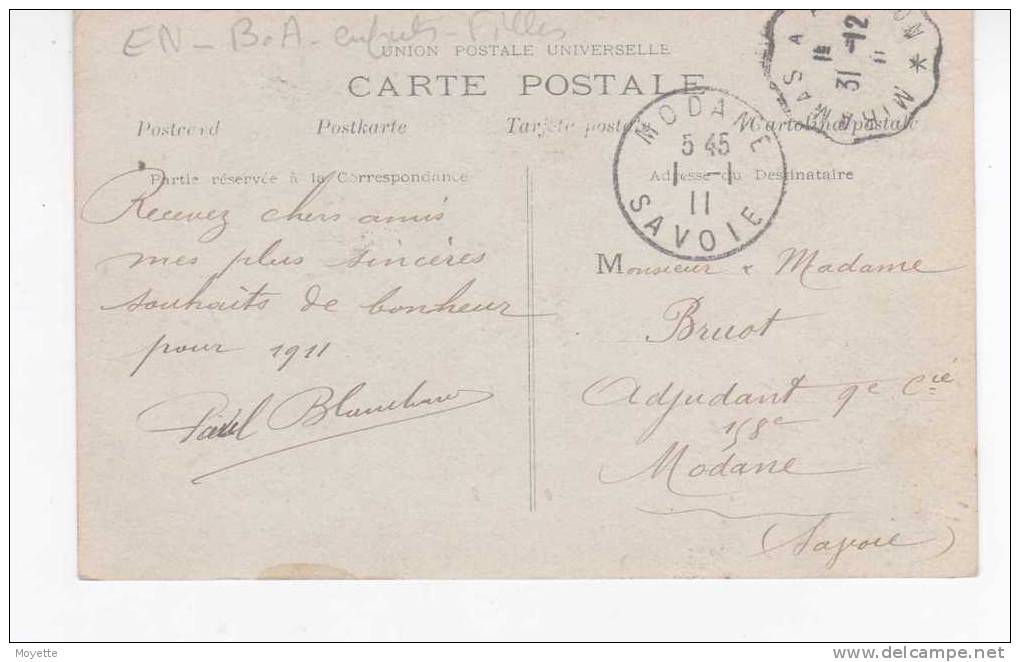 EN - B.A - enfants - Filles
UNION POSTALE UNIVERSELLE
CARTE POSTALE
Postcard Postkarte Tarjeta postale Cartolina postale
Partie réservée à la Correspondance
Adresse du Destinataire
MODANE
5 45
1 - 1
11
SAVOIE
MIRAMAS A
31 -12
Recevez chers amis
mes plus sincères
souhaits de bonheur
pour 1911
Blanchard
Monsieur & Madame
Bruot
Adjudant 9e Cie
158e
Modane
(Savoie)
Moyette
www.delcampe.net